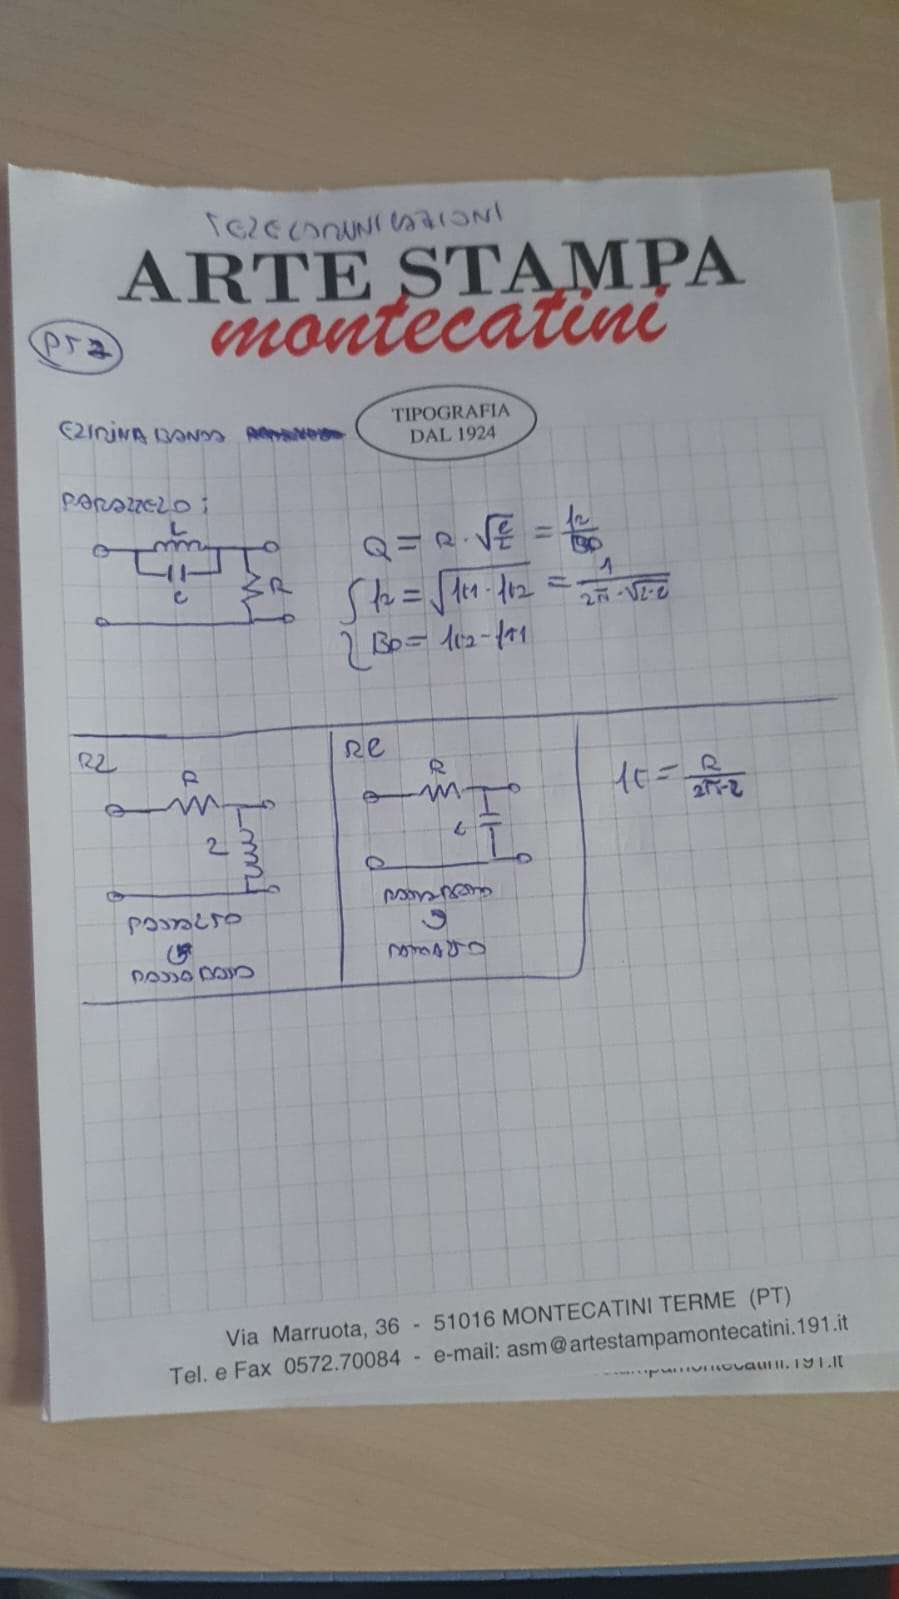 TELECOMUNICAZIONI
ARTE STAMPA
montecatini
PT 2
TIPOGRAFIA
DAL 1924
ELIMINA BANDA
PARALLELO:
L
C
R
Q = R · √(C/L) = fr/BP
fr = √(ft1 · ft2) = 1/(2π · √(L·C))
BP = ft2 - ft1
RL
R
L
PASSALTO
PASSABASSO
RC
R
C
PASSABASSO
PASSALTO
ft = R/(2π·L)
Via Marruota, 36 - 51016 MONTECATINI TERME (PT)
Tel. e Fax 0572.70084 - e-mail: asm@artestampamontecatini.191.it